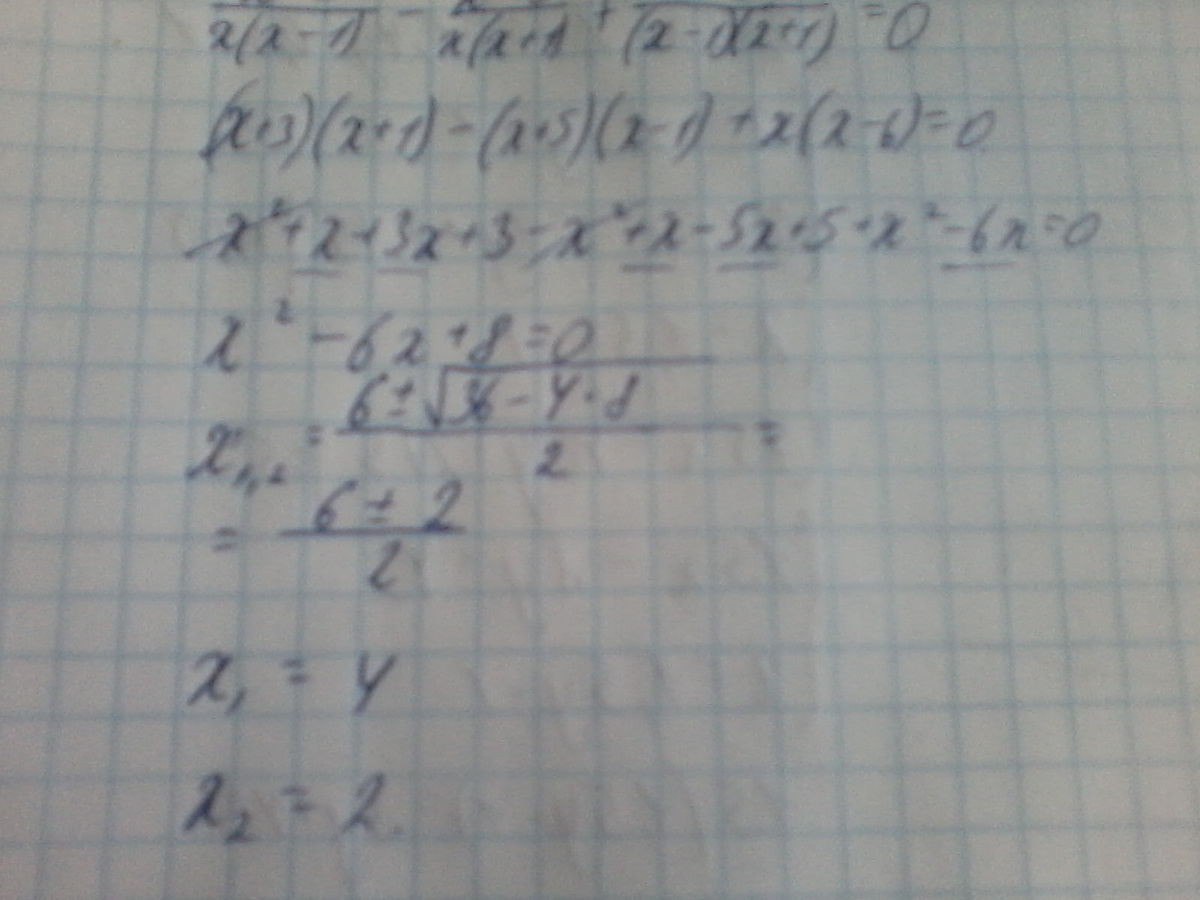 x(x-1) - x(x+1) + (x-1)(x+1) = 0
(x+3)(x+1) - (x+5)(x-1) + x(x-6) = 0
x² + x + 3x + 3 - x² + x - 5x + 5 + x² - 6x = 0
x² - 6x + 8 = 0
6 ± √36 - 4·8
x₁,₂ = =
2
6 ± 2
=
2
x₁ = 4
x₂ = 2.